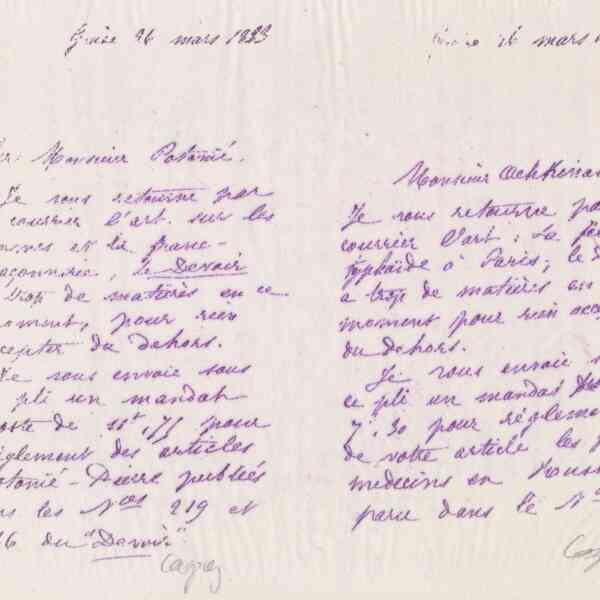 Guise 26 mars 1883
Monsieur Potonié.
Je vous retourne par
courrier l'art. sur les
et la franc-
açonnerie, le Devoir
trop de matières en ce
oment, pour rien
ccepter du dehors.
Je vous envoie sous
pli un mandat
oste de 11f,75 pour
règlement des articles
otonié-Pierre publiés
les Nos 219 et
6 du "Devoir".
26 mars 1
Monsieur
Je vous retourne pa
courrier l'art: La
typhoïde à Paris; le D
a trop de matières en
moment pour rien acc
du dehors.
Je vous envoie s
ce pli un mandat
7,30 pour règleme
de votre article les
medecins en Russ
paru dans le No